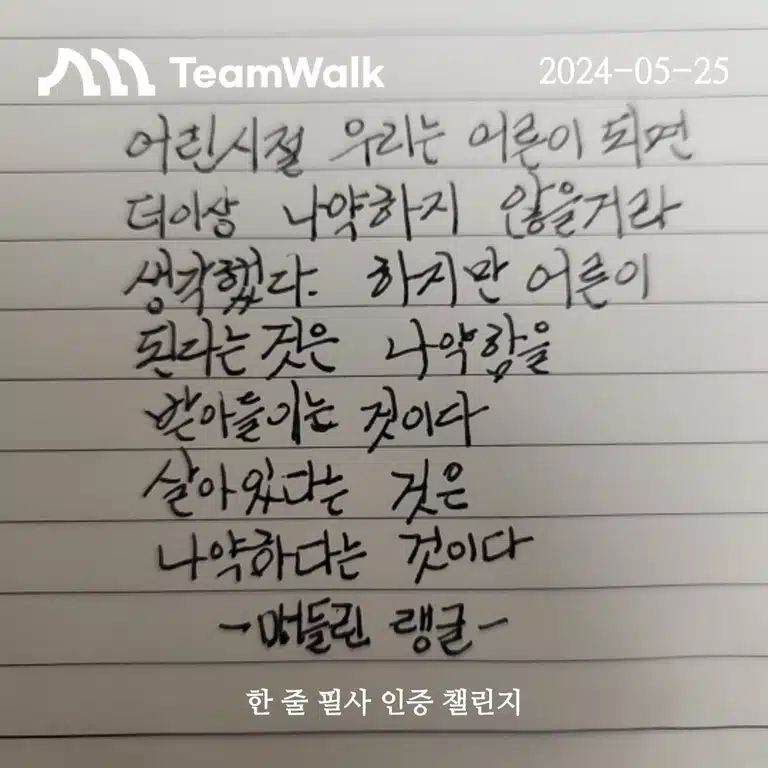 TeamWalk 2024-05-25
어린시절 우리는 어른이 되면
더이상 나약하지 않을거라
생각했다. 하지만 어른이
된다는 것은 나약함을
받아들이는 것이다
살아있다는 것은
나약하다는 것이다
-매들린 랭글-
한 줄 필사 인증 챌린지